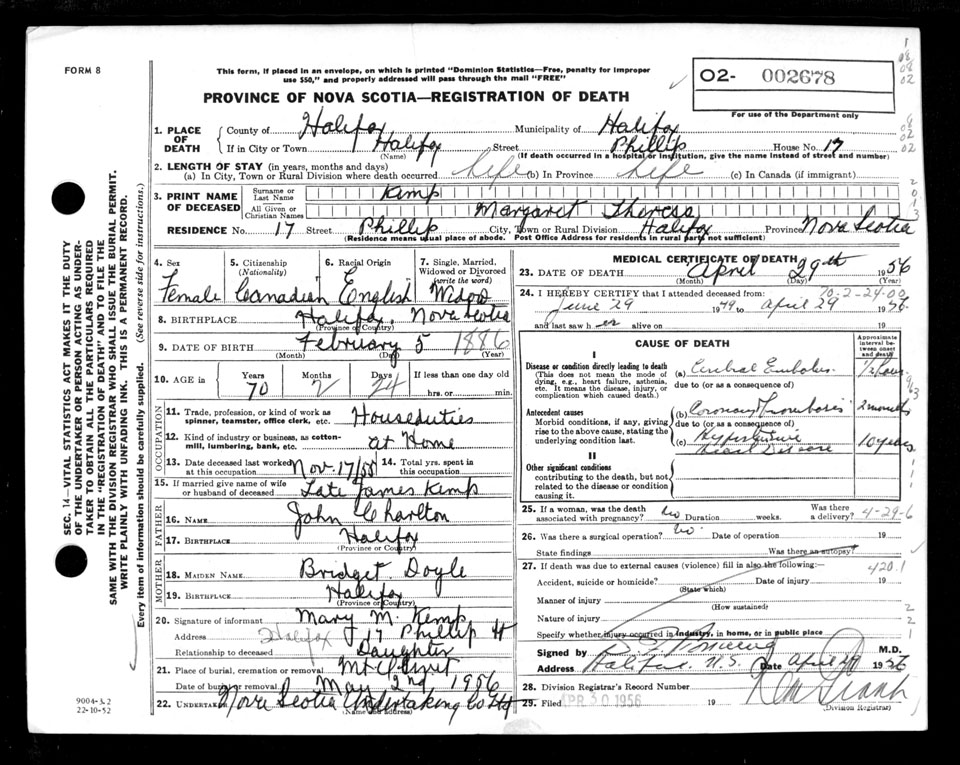 FORM 8
This form, if placed in an envelope, on which is printed "Dominion Statistics—Free, penalty for improper
use $50," and properly addressed will pass through the mail "FREE"
O2- 002678
For use of the Department only
PROVINCE OF NOVA SCOTIA—REGISTRATION OF DEATH
1. PLACE OF DEATH
County of Halifax Municipality of Halifax
If in City or Town Halifax Street Phillip House No. 17
(Name) (If death occurred in a hospital or institution, give the name instead of street and number)
2. LENGTH OF STAY (in years, months and days)
(a) In City, Town or Rural Division where death occurred life (b) In Province life (c) In Canada (if immigrant)
3. PRINT NAME OF DECEASED
Surname or Last Name Kemp
All Given or Christian Names Margaret Theresa
RESIDENCE No. 17 Street Phillip City, Town or Rural Division Halifax Province Nova Scotia
(Residence means usual place of abode. Post Office Address for residents in rural parts not sufficient)
4. Sex Female
5. Citizenship (Nationality) Canadian
6. Racial Origin English
7. Single, Married, Widowed or Divorced (write the word) Widow
8. BIRTHPLACE Halifax, Nova Scotia
(Province or Country)
9. DATE OF BIRTH February 5 1886
(Month) (Day) (Year)
10. AGE in Years 70 Months 2 Days 24 If less than one day hrs. or min.
OCCUPATION
11. Trade, profession, or kind of work as spinner, teamster, office clerk, etc. Houseduties
12. Kind of industry or business, as cotton-mill, lumbering, bank, etc. at Home
13. Date deceased last worked at this occupation Nov. 17/55
14. Total yrs. spent in this occupation
15. If married give name of wife or husband of deceased Late James Kemp
FATHER
16. NAME John Charlton
17. BIRTHPLACE Halifax
(Province or Country)
MOTHER
18. MAIDEN NAME Bridget Doyle
19. BIRTHPLACE Halifax
(Province or Country)
20. Signature of informant Mary M. Kemp
Address Halifax 17 Phillip St
Relationship to deceased Daughter
21. Place of burial, cremation or removal Mt Olivet
Date of burial or removal May 2nd 1956
22. UNDERTAKER Nova Scotia Undertaking Co
(Name and address)
MEDICAL CERTIFICATE OF DEATH
23. DATE OF DEATH April 29th 1956
(Month) (Day) (Year)
24. I HEREBY CERTIFY that I attended deceased from: 70-2-24-00
June 29 1949 to April 29 1956
and last saw her alive on 19
CAUSE OF DEATH
Approximate interval between onset and death
I
Disease or condition directly leading to death
(This does not mean the mode of dying, e.g., heart failure, asthenia, etc. It means the disease, injury, or complication which caused death.)
(a) Cerebral Embolus 1/2 hour
due to (or as a consequence of)
Antecedent causes
Morbid conditions, if any, giving rise to the above cause, stating the underlying condition last.
(b) Coronary Thrombosis 2 months
due to (or as a consequence of)
(c) Hypertensive Heart Disease 10 years
II
Other significant conditions
contributing to the death, but not related to the disease or condition causing it.
25. If a woman, was the death associated with pregnancy? no Duration weeks. Was there a delivery? 4-29-6
26. Was there a surgical operation? no. Date of operation 19
State findings Was there an autopsy?
27. If death was due to external causes (violence) fill in also the following:— 420.1
Accident, suicide or homicide? Date of injury 19
(State which)
Manner of injury
(How sustained)
Nature of injury
Specify whether injury occurred in industry, in home, or in public place
Signed by M.D.
Address Halifax N.S. Date April 1956
28. Division Registrar's Record Number
29. Filed APR 30 1956 19
(Division Registrar)
SEC. 14—VITAL STATISTICS ACT MAKES IT THE DUTY
OF THE UNDERTAKER OR PERSON ACTING AS UNDER-
TAKER TO OBTAIN ALL THE PARTICULARS REQUIRED
IN THE "REGISTRATION OF DEATH" AND TO FILE THE
SAME WITH THE DIVISION REGISTRAR WHO SHALL ISSUE THE BURIAL PERMIT.
WRITE PLAINLY WITH UNFADING INK. THIS IS A PERMANENT RECORD.
Every item of information should be carefully supplied. (See reverse side for instructions.)
9004-3.2
22-10-52